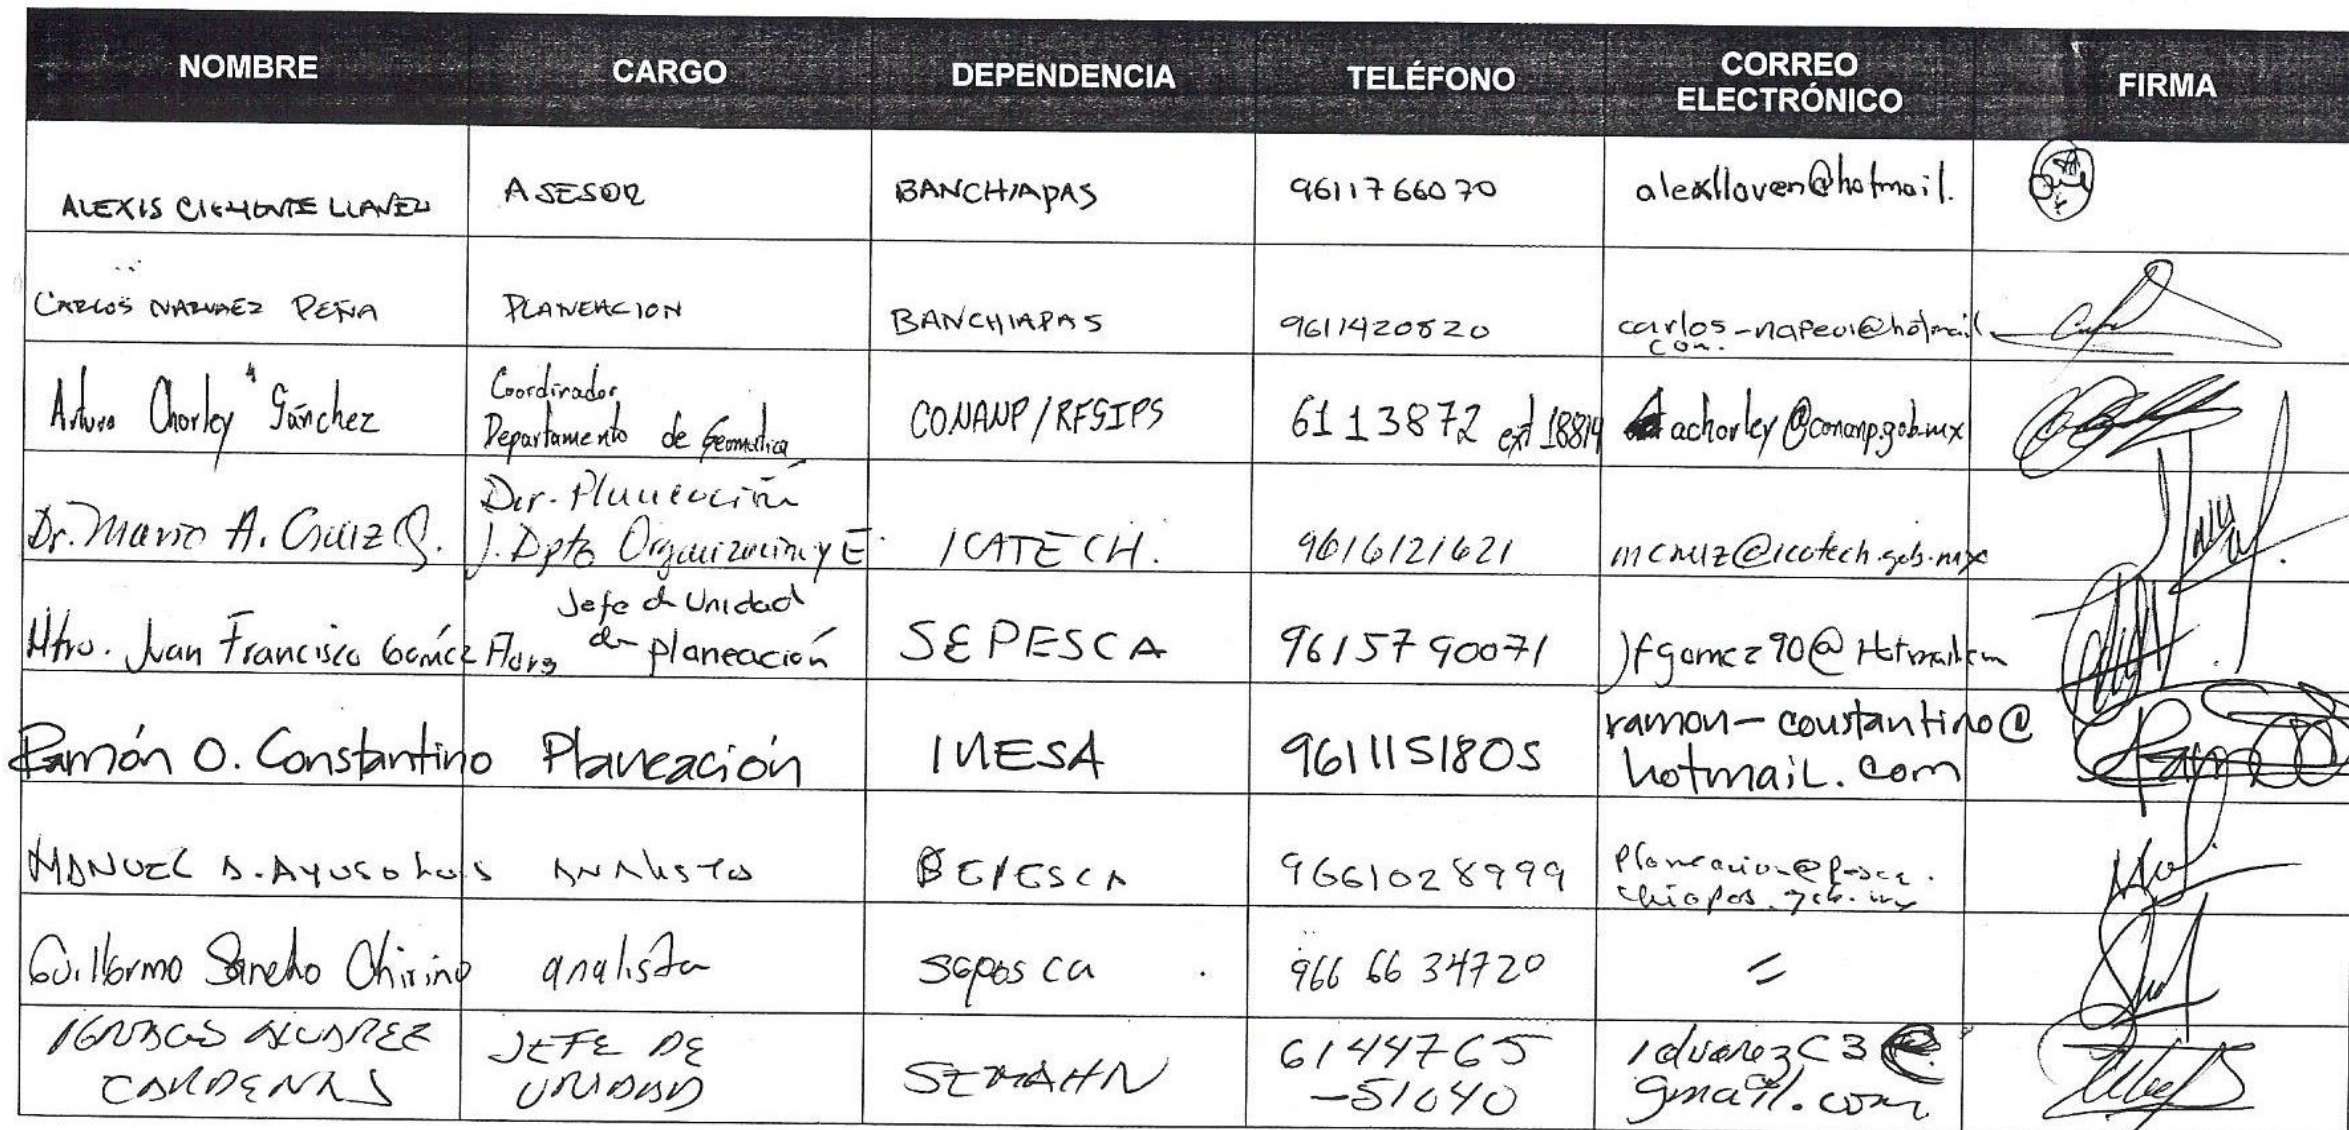 NOMBRE CARGO DEPENDENCIA TELÉFONO CORREO ELECTRÓNICO FIRMA
ALEXIS ASESOR BANCHIAPAS 9611766070 alexlloven@hotmail.
CARLOS NARVAEZ PEÑA PLANEACION BANCHIAPAS 9611420520 carlos-napeul@hotmail.
com.
Arturo Chorley Sánchez Coordinador
Departamento de Geomatica CONANP/RFSIPS 61 1 3872 ext 18814 achorley@conanp.gob.mx
Dr. Mario A. Cruz Dir. Planeación
J. Dpto Organización y E. ICATECH. 9616121621 mcruz@icatech.gob.mx
Mtro. Juan Francisco Gómez Flores Jefe de Unidad
de planeación SEPESCA 9615790071 jfgomez90@Hotmail.com
Ramón O. Constantino Planeación INESA 9611151805 ramon-constantino@
hotmail.com
MANUEL A. AYUSO ANALISTA SEPESCA 9661028999 Planeacion@pesca.
chiapas.gob.mx
Guillermo Sancho Chirino analista sepesca 966 66 34720 =
IGNACIO ALVAREZ
CARDENAS JEFE DE
UNIDAD SEMAHN 6144765
-51040 ialvarezC3@
gmail.com